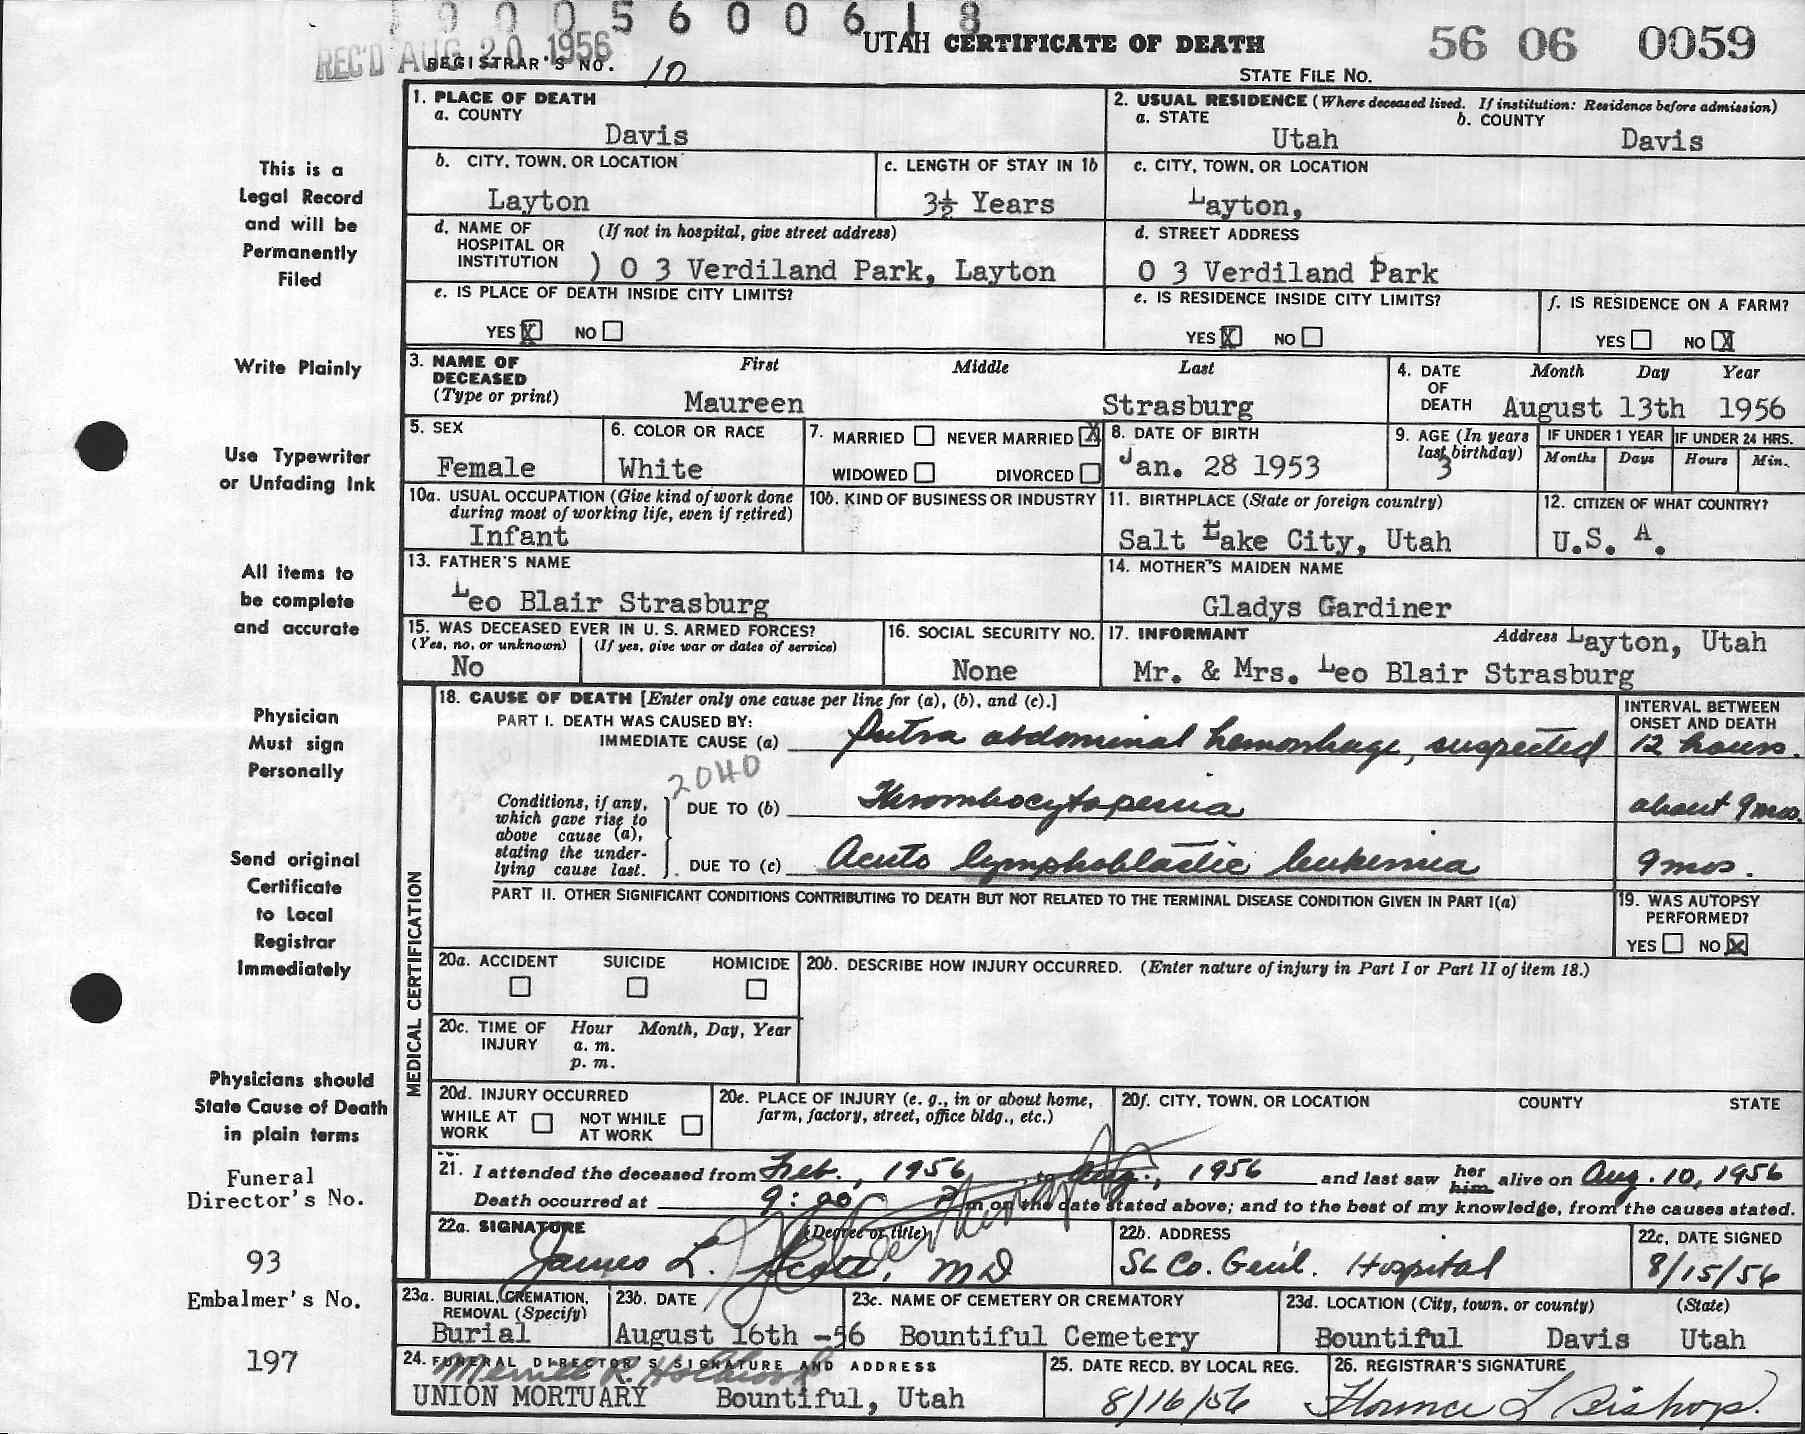 19005600618
REC'D AUG 20 1956
UTAH CERTIFICATE OF DEATH
56 06 0059
REGISTRAR'S NO. 10
STATE FILE NO.
1. PLACE OF DEATH
a. COUNTY
Davis
2. USUAL RESIDENCE (Where deceased lived. If institution: Residence before admission)
a. STATE
Utah
b. COUNTY
Davis
b. CITY, TOWN, OR LOCATION
Layton
c. LENGTH OF STAY IN 1b
3½ Years
c. CITY, TOWN, OR LOCATION
Layton,
d. NAME OF HOSPITAL OR INSTITUTION (If not in hospital, give street address)
) O 3 Verdiland Park, Layton
d. STREET ADDRESS
O 3 Verdiland Park
e. IS PLACE OF DEATH INSIDE CITY LIMITS?
YES X NO
e. IS RESIDENCE INSIDE CITY LIMITS?
YES X NO
f. IS RESIDENCE ON A FARM?
YES NO X
3. NAME OF DECEASED (Type or print)
First Middle Last
Maureen Strasburg
4. DATE OF DEATH
Month Day Year
August 13th 1956
5. SEX
Female
6. COLOR OR RACE
White
7. MARRIED NEVER MARRIED X
WIDOWED DIVORCED
8. DATE OF BIRTH
Jan. 28 1953
9. AGE (In years last birthday)
3
IF UNDER 1 YEAR
Months Days
IF UNDER 24 HRS.
Hours Min.
10a. USUAL OCCUPATION (Give kind of work done during most of working life, even if retired)
Infant
10b. KIND OF BUSINESS OR INDUSTRY
11. BIRTHPLACE (State or foreign country)
Salt Lake City, Utah
12. CITIZEN OF WHAT COUNTRY?
U.S. A.
13. FATHER'S NAME
Leo Blair Strasburg
14. MOTHER'S MAIDEN NAME
Gladys Gardiner
15. WAS DECEASED EVER IN U. S. ARMED FORCES?
(Yes, no, or unknown) (If yes, give war or dates of service)
No
16. SOCIAL SECURITY NO.
None
17. INFORMANT Address Layton, Utah
Mr. & Mrs. Leo Blair Strasburg
MEDICAL CERTIFICATION
18. CAUSE OF DEATH [Enter only one cause per line for (a), (b), and (c).]
PART I. DEATH WAS CAUSED BY:
IMMEDIATE CAUSE (a) Intra abdominal hemorrhage, suspected
INTERVAL BETWEEN ONSET AND DEATH
12 hours.
2040
Conditions, if any, which gave rise to above cause (a), stating the underlying cause last.
DUE TO (b) Thrombocytopenia
about 9 mos.
DUE TO (c) Acute lymphoblastic leukemia
9 mos.
PART II. OTHER SIGNIFICANT CONDITIONS CONTRIBUTING TO DEATH BUT NOT RELATED TO THE TERMINAL DISEASE CONDITION GIVEN IN PART I(a)
19. WAS AUTOPSY PERFORMED?
YES NO X
20a. ACCIDENT SUICIDE HOMICIDE
20b. DESCRIBE HOW INJURY OCCURRED. (Enter nature of injury in Part I or Part II of item 18.)
20c. TIME OF INJURY Hour a. m. p. m. Month, Day, Year
20d. INJURY OCCURRED
WHILE AT WORK NOT WHILE AT WORK
20e. PLACE OF INJURY (e. g., in or about home, farm, factory, street, office bldg., etc.)
20f. CITY, TOWN, OR LOCATION COUNTY STATE
21. I attended the deceased from Feb., 1956 to Aug., 1956 and last saw her him alive on Aug. 10, 1956
Death occurred at 9:20 P m on the date stated above; and to the best of my knowledge, from the causes stated.
22a. SIGNATURE (Degree or title)
James L. Scott, MD
22b. ADDRESS
SL Co. Gen'l. Hospital
22c. DATE SIGNED
8/15/56
23a. BURIAL, CREMATION, REMOVAL (Specify)
Burial
23b. DATE
August 16th -56
23c. NAME OF CEMETERY OR CREMATORY
Bountiful Cemetery
23d. LOCATION (City, town, or county) (State)
Bountiful Davis Utah
24. FUNERAL DIRECTOR'S SIGNATURE AND ADDRESS
Merrill R. Holbrook
UNION MORTUARY Bountiful, Utah
25. DATE RECD. BY LOCAL REG.
8/16/56
26. REGISTRAR'S SIGNATURE
Florence L Bishop.
This is a
Legal Record
and will be
Permanently
Filed
Write Plainly
Use Typewriter
or Unfading Ink
All items to
be complete
and accurate
Physician
Must sign
Personally
Send original
Certificate
to Local
Registrar
Immediately
Physicians should
State Cause of Death
in plain terms
Funeral
Director's No.
93
Embalmer's No.
197